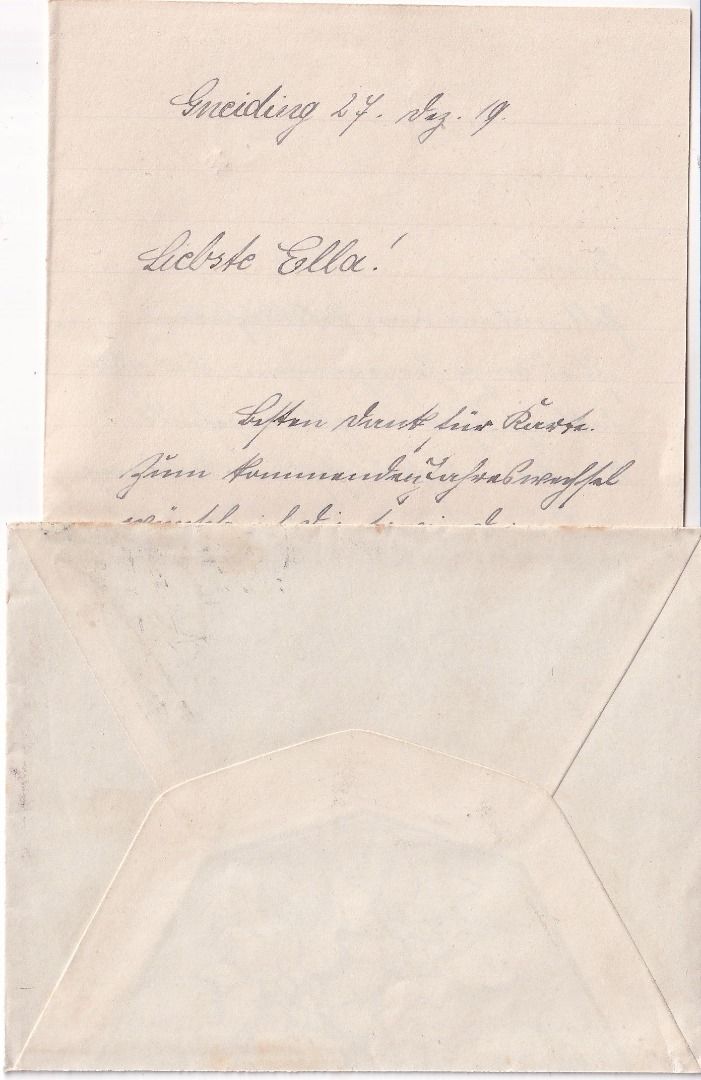 Gneiding 27. Dez. 19.
Liebste Ella!
Besten Dank für Karte.
Zum kommenden Jahreswechsel
wünsche ich dir